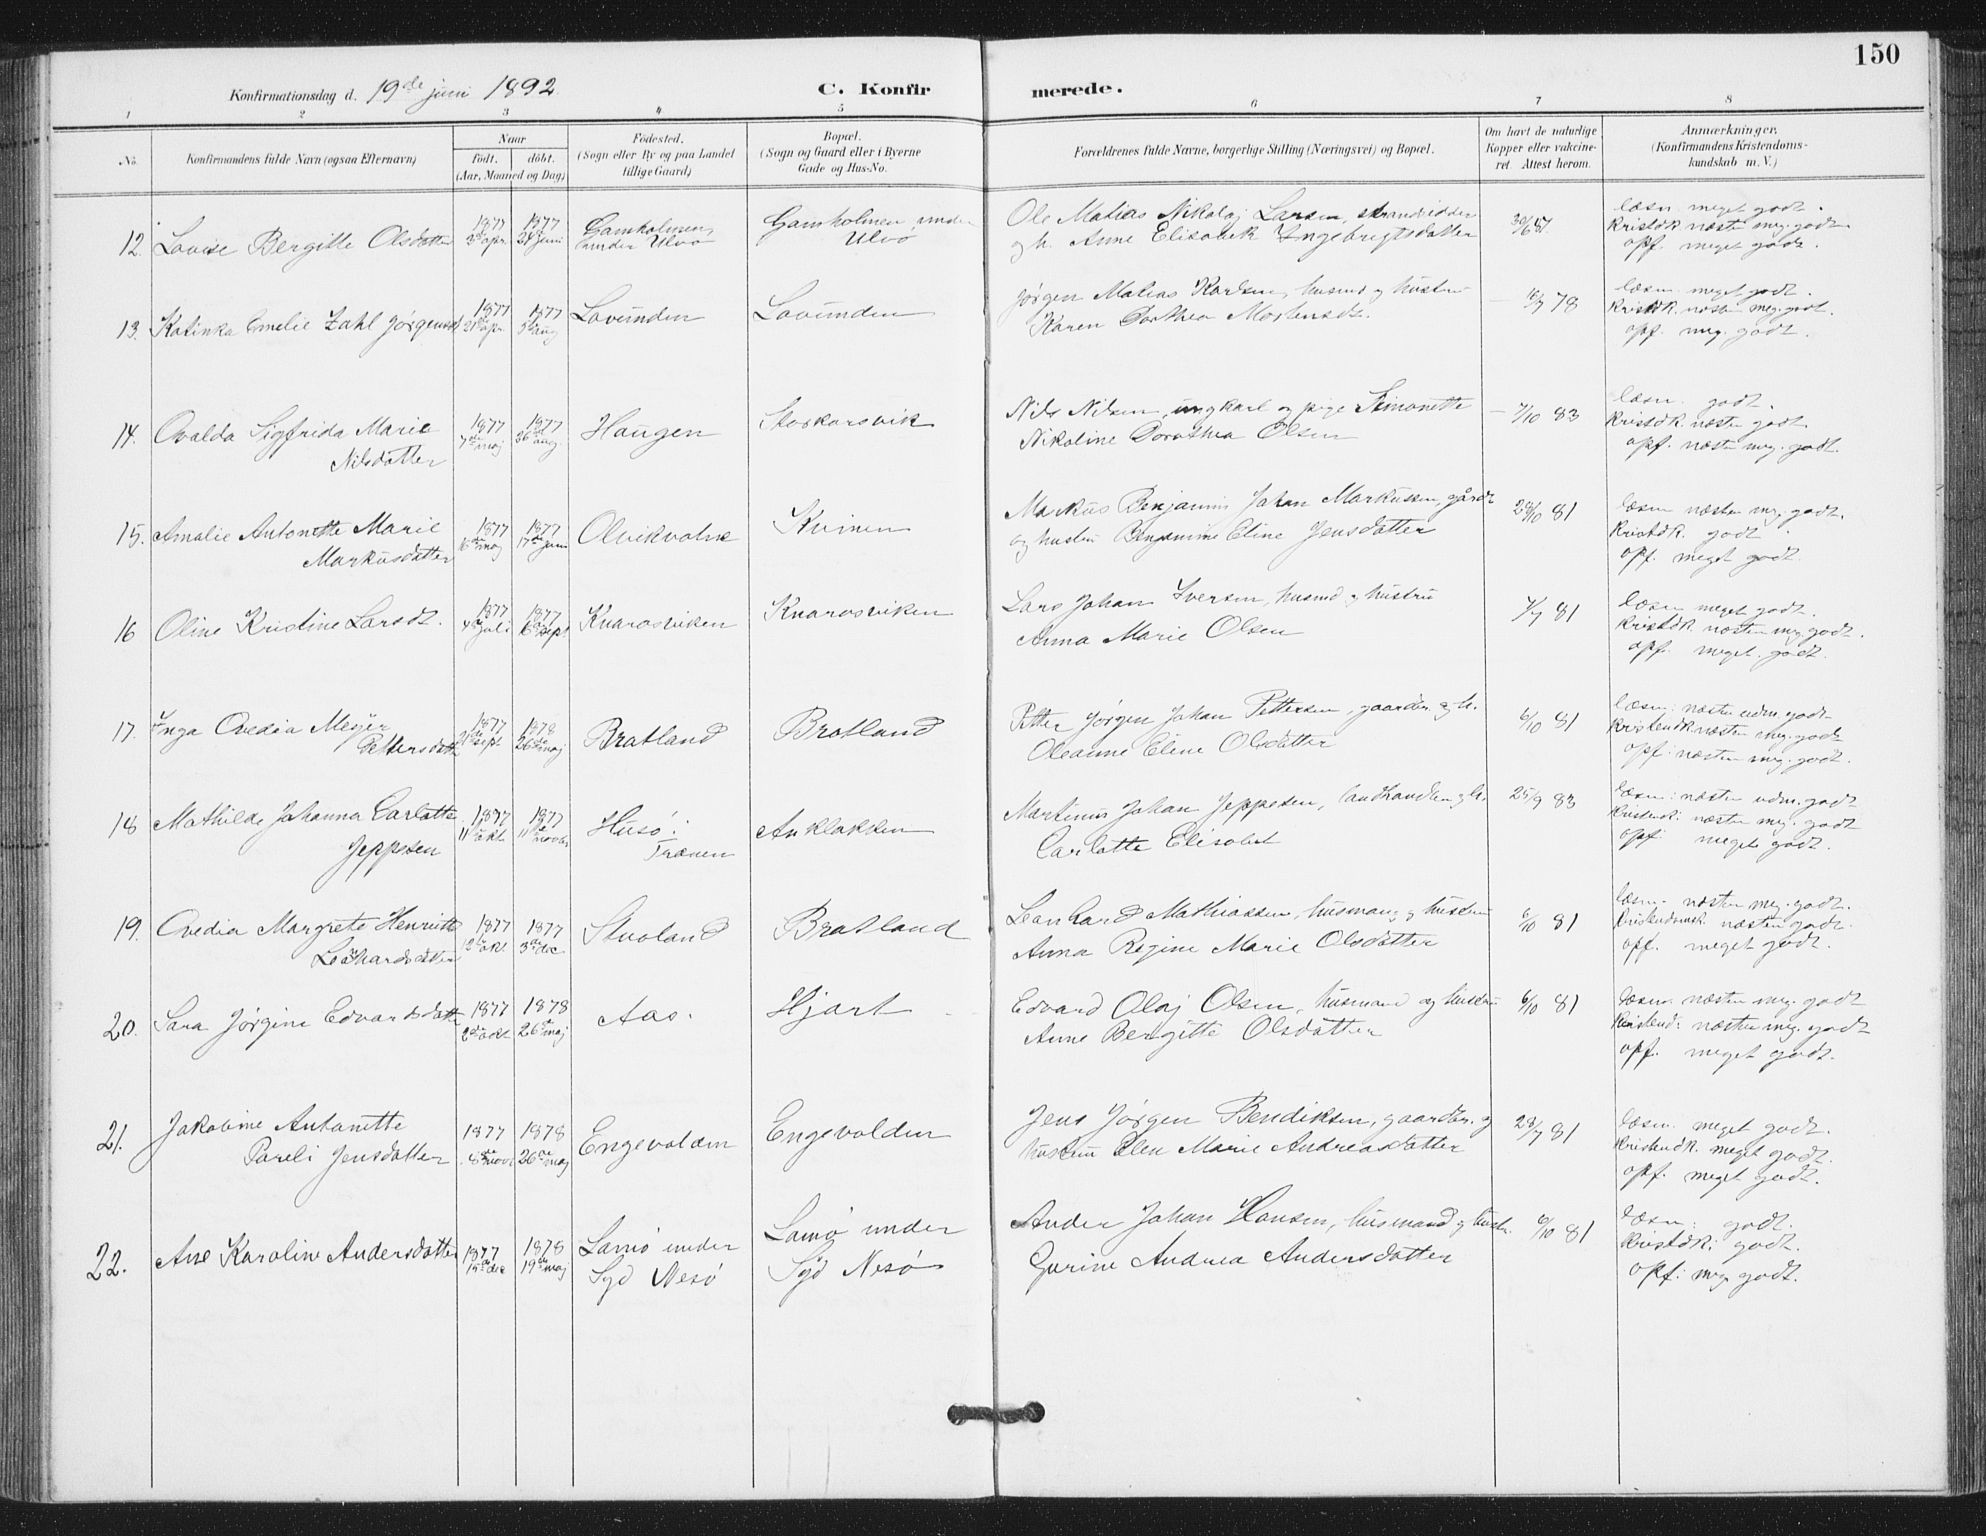 150
Konfirmationsdag d. 19de juni 1892
C. Konfirmerede.
1 2 3 4 5 6 7 8
No.
Konfirmandens fulde Navn (ogsaa Efternavn)
Naar
födt. döbt.
(Aar, Maaned og Dag)
Födested.
(Sogn eller By og paa Landet
tillige Gaard)
Bopæl.
(Sogn og Gaard eller i Byerne
Gade og Hus-No.
Forældrenes fulde Navne, borgerlige Stilling (Næringsvei) og Bopæl.
Om havt de naturlige
Kopper eller vakcine-
ret Attest herom.
Anmærkninger.
(Konfirmandens Kristendoms-
kundskab m. V.)
12. Lovise Bergitte Olsdatter
1877 3de apr.
1877 24de juni
Gamholmen
under Ulvø
Gamholmen under
Ulvø
Ole Matias Nikolaj Larsen, strandsidder
og h. Anne Elisabek Ingebrigtsdatter
læsn. meget godt.
kristdk. næsten meg. godt.
opf. meget godt.
13. Katinka Emelie Zahl Jørgensdt
1877 apr.
1877 5te aug
Lovunden
Lovunden
Jørgen Matias Karlsen, husmd og hustru
Karen Dorthea Mortensdt.
78
læsn. meget godt.
Kristdk. næsten meg. godt.
opf. meg. godt.
14. Ovalda Sigfrida Marie
Nilsdatter
1877 7de maj
1877 26de aug.
Haugen
Stoskarsvik
Nils Nilsen, ungkarl og pige Simonette
Nikoline Dorothea Olsen
7/10 83
læsn. godt.
kristdk. næsten godt.
opf. næsten meg. godt.
15. Amalie Antonette Marie
Markusdatter
1877 16de maj
1877 17de juni
Olvikvolne
Kvinen
Markus Benjamin Johan Markussen, gårdr
og hustru Benjamine Eline Jensdatter
29/10 81
læsn næsten meg. godt.
Kristdk. godt.
opf. meget godt.
16 Oline Kristine Larsdt.
1877 4de juli
1877 16de sept
Knarosviken
Knarosviken
Lars Johan Iversen, husmd og hustru
Anna Marie Olsen
7/7 81
læsn meget godt.
kristdk. næsten meg. godt.
opf. meget. godt.
17. Inga Ovedia Mejer
Pettersdatt
1877 21de sept
1878 26de maj
Bratland
Bratland
Petter Jørgen Johan Pettersen, gaardbr. og h.
Oleanne Eline Olsdatter
6/10 81
læsn: næsten udm. godt
kristendk næsten meg. godt
opf: næsten meg. godt.
18 Mathilde Johanna Carlotte
Jeppesen
1877 11te okt
1877 11te novbr
Husø:
Trænen
Anklakken
Martinus Johan Jeppesen, landhandler og h.
Carlotte Elisabet
25/9 83
læsn: næsten udm. godt
kristenk: næsten meg. godt
opf: meget godt.
19. Ovedia Margrete Henriette
Leonhardsdatter
1877 12te okt
1877 3de dec
Stvoland
Bratland
Leonhard Mathiassen, husmang og hustru
Anna Regine Marie Olsdatter
6/10 81
læsn. næsten meg. godt.
kristendomsk. næsten godt.
opf. meget godt.
20. Sara Jørgine Edvardsdatter
1877 2de okt
1878 26de maj
Aas.
Hjart
Edvard Olaj Olsen, husmand og hustru
Anne Bergitte Olsdatter
6/10 81
læsn. næsten meg. godt
kristend: næsten meg. godt
opf. meget godt.
21. Jakobine Antonette
Pareli Jensdatter
1877 8de novbr
1878 26de maj
Engevolden
Engevolden
Jens Jørgen Bendiksen, gaardbr. og
hustru Elen Marie Andreasdatter
28/7 81
læsn. meget godt.
kristendk. meget godt.
opf. meget godt.
22. Ane Karoline Andersdatter
1877 15de dec
1878 19de maj
Lamø under
Syd Nesø
Lamø under
Syd Nesø
Ander Johan Hansen, husmand og hustr.
Gurine Andrea Andersdatter
6/10 81
læsn: godt.
kristdk: godt.
opf: meg godt.